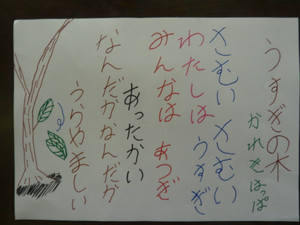 うすぎの木
かれきはっぱ
さむい さむい
わたしは うすぎ
みんなは あつぎ
あったかい
なんだかなんだか
うらやましい